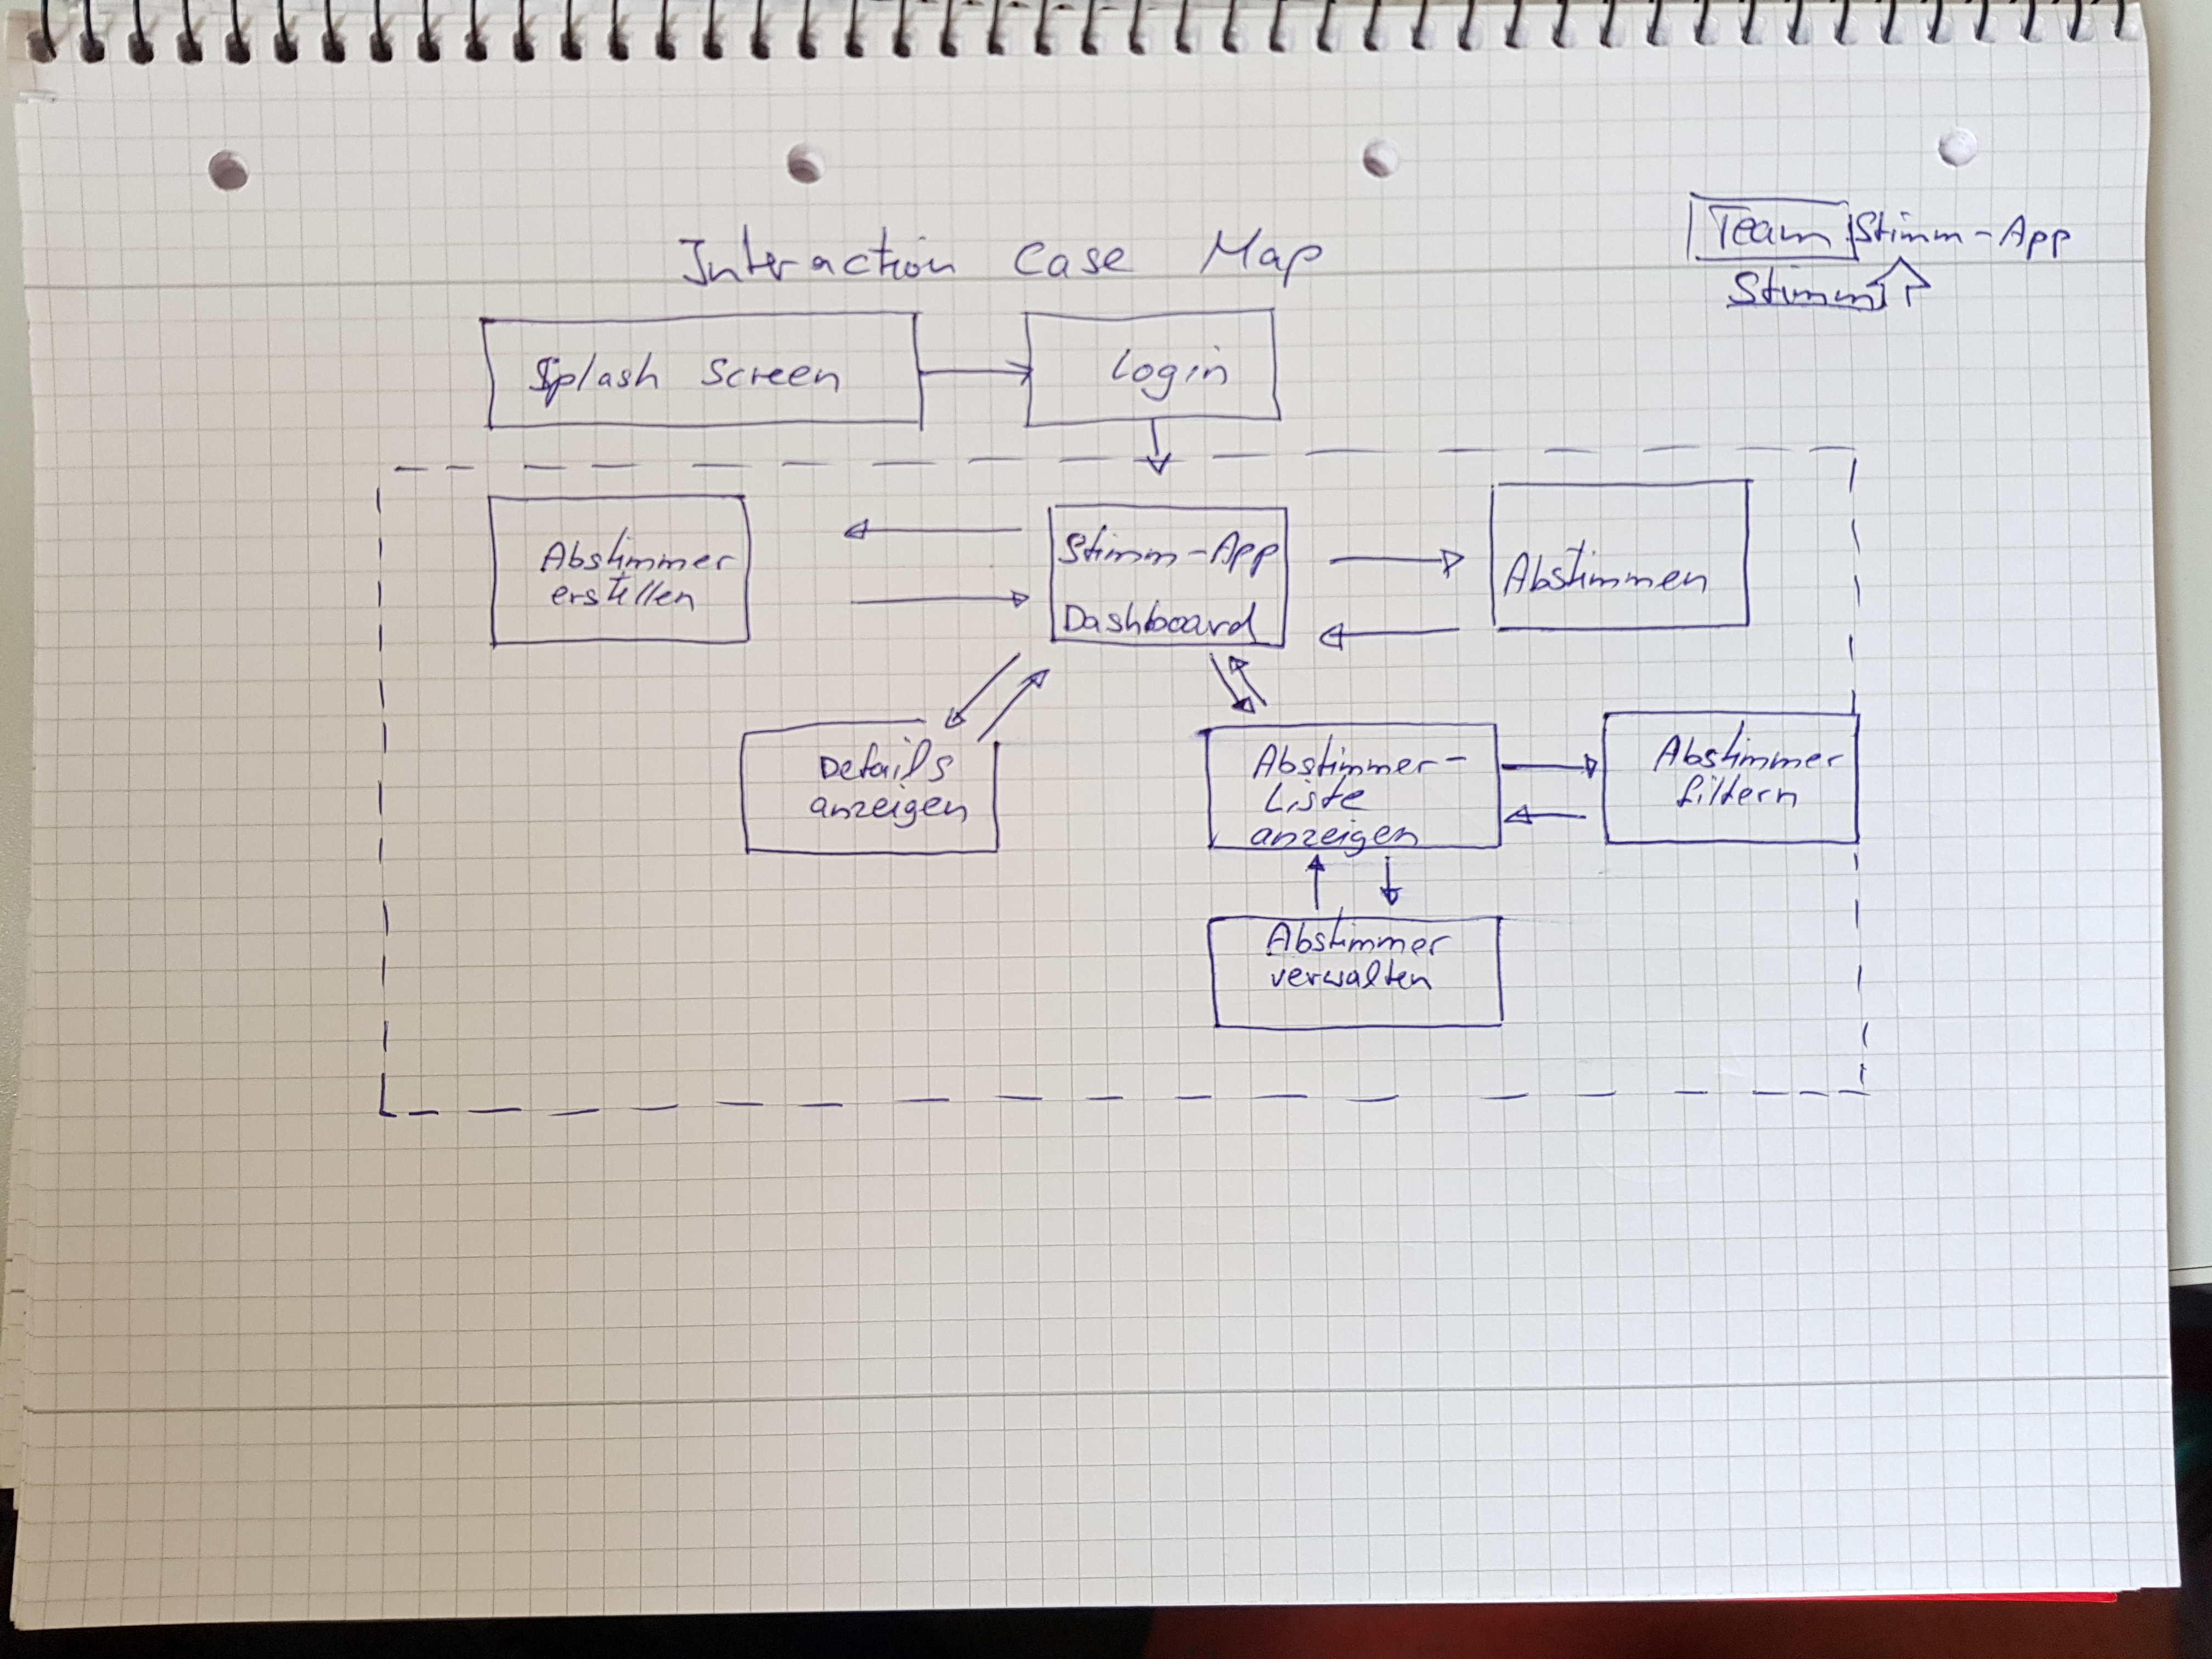 Interaction Case Map
Team Stimm-App
Stimm
Splash Screen
Login
Abstimmer
erstellen
Stimm-App
Dashboard
Abstimmen
Details
anzeigen
Abstimmer-
Liste
anzeigen
Abstimmer
filtern
Abstimmer
verwalten